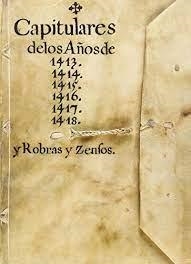 Capitulares
delos Años de
1413.
1414.
1415.
1416.
1417.
1418.
y Robras y Zensos.